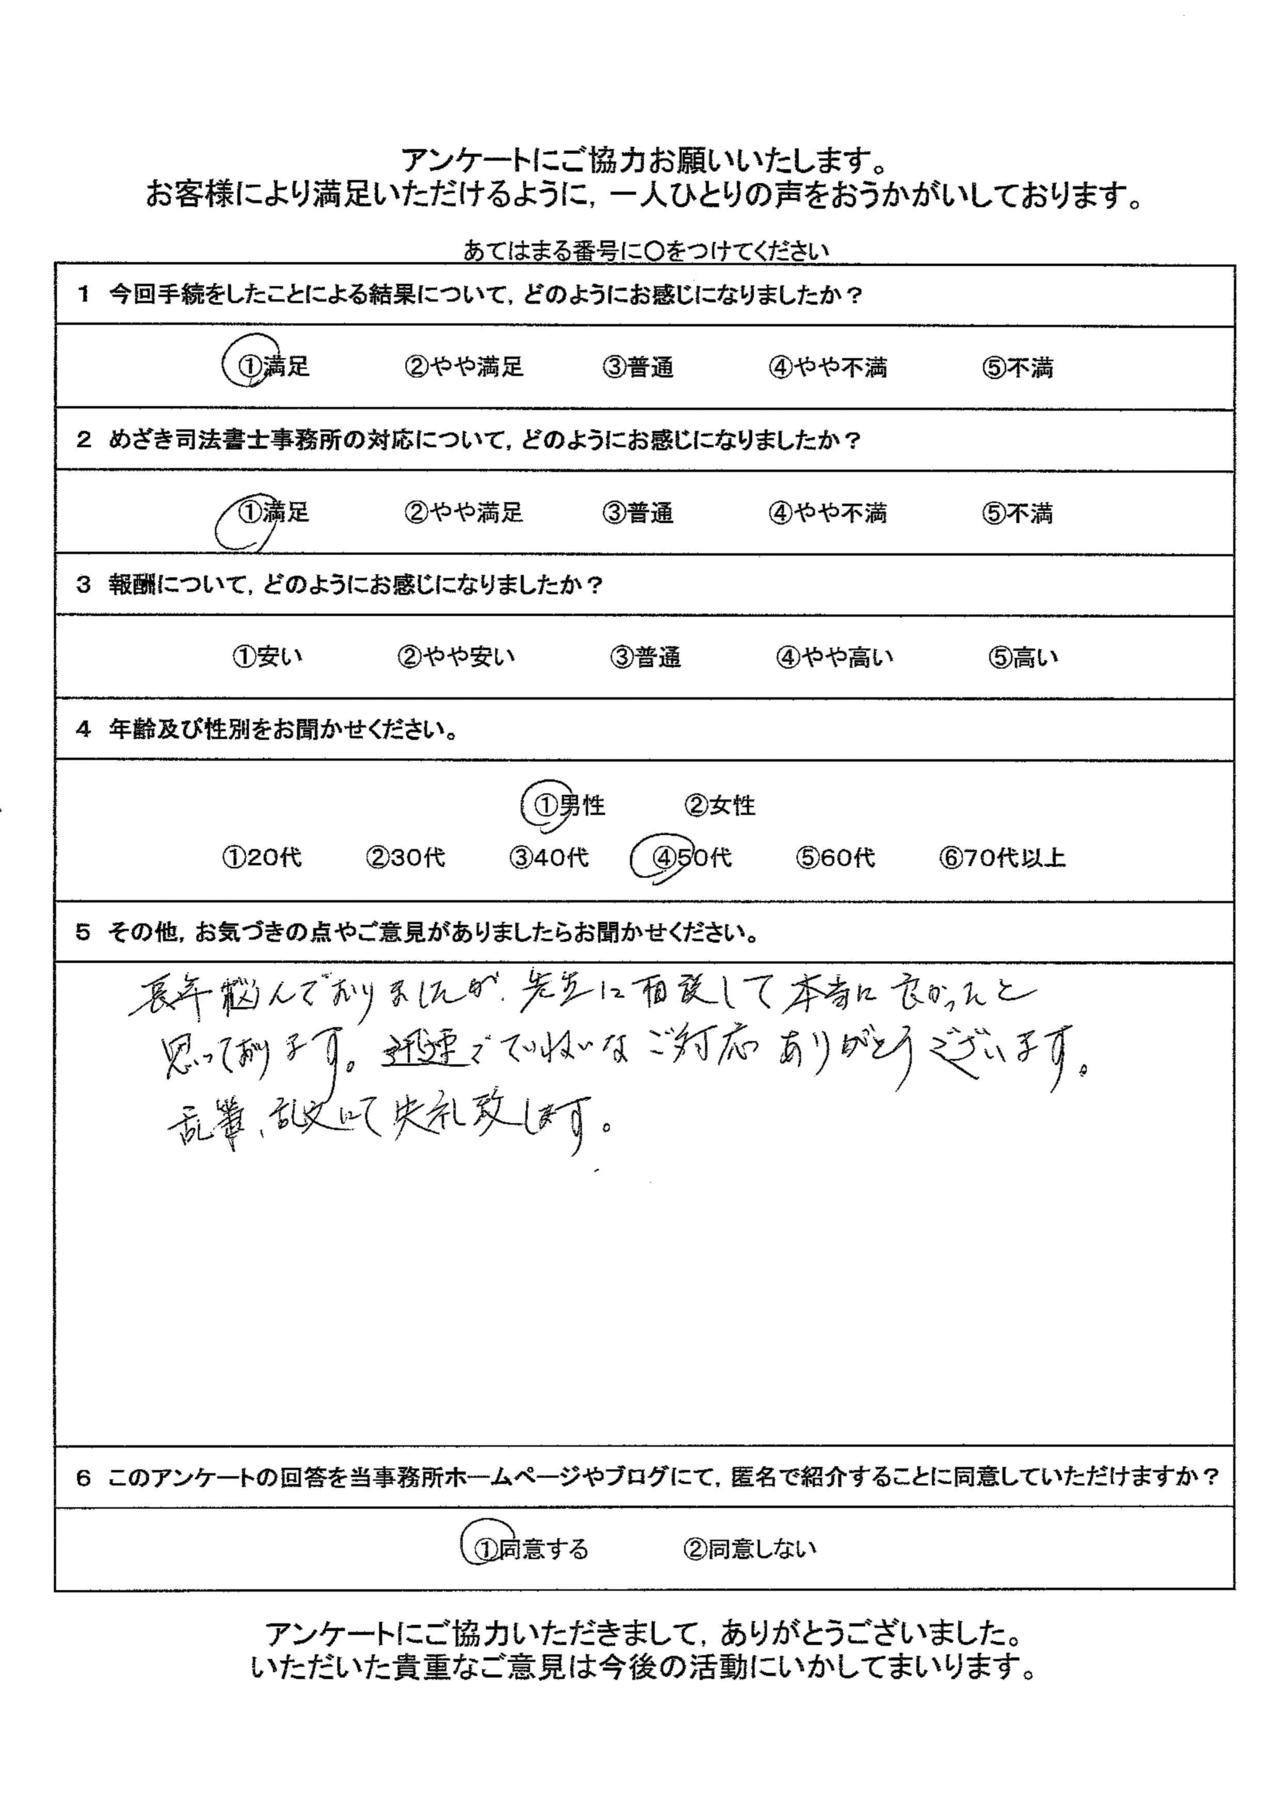 アンケートにご協力お願いいたします。
お客様により満足いただけるように，一人ひとりの声をおうかがいしております。
あてはまる番号に○をつけてください
1 今回手続をしたことによる結果について，どのようにお感じになりましたか？
①満足 ②やや満足 ③普通 ④やや不満 ⑤不満
2 めざき司法書士事務所の対応について，どのようにお感じになりましたか？
①満足 ②やや満足 ③普通 ④やや不満 ⑤不満
3 報酬について，どのようにお感じになりましたか？
①安い ②やや安い ③普通 ④やや高い ⑤高い
4 年齢及び性別をお聞かせください。
①男性 ②女性
①20代 ②30代 ③40代 ④50代 ⑤60代 ⑥70代以上
5 その他，お気づきの点やご意見がありましたらお聞かせください。
長年悩んでおりましたが、先生に相談して本当に良かったと
思っております。迅速でていねいなご対応ありがとうございます。
乱筆、乱文にて失礼致します。
6 このアンケートの回答を当事務所ホームページやブログにて，匿名で紹介することに同意していただけますか？
①同意する ②同意しない
アンケートにご協力いただきまして，ありがとうございました。
いただいた貴重なご意見は今後の活動にいかしてまいります。